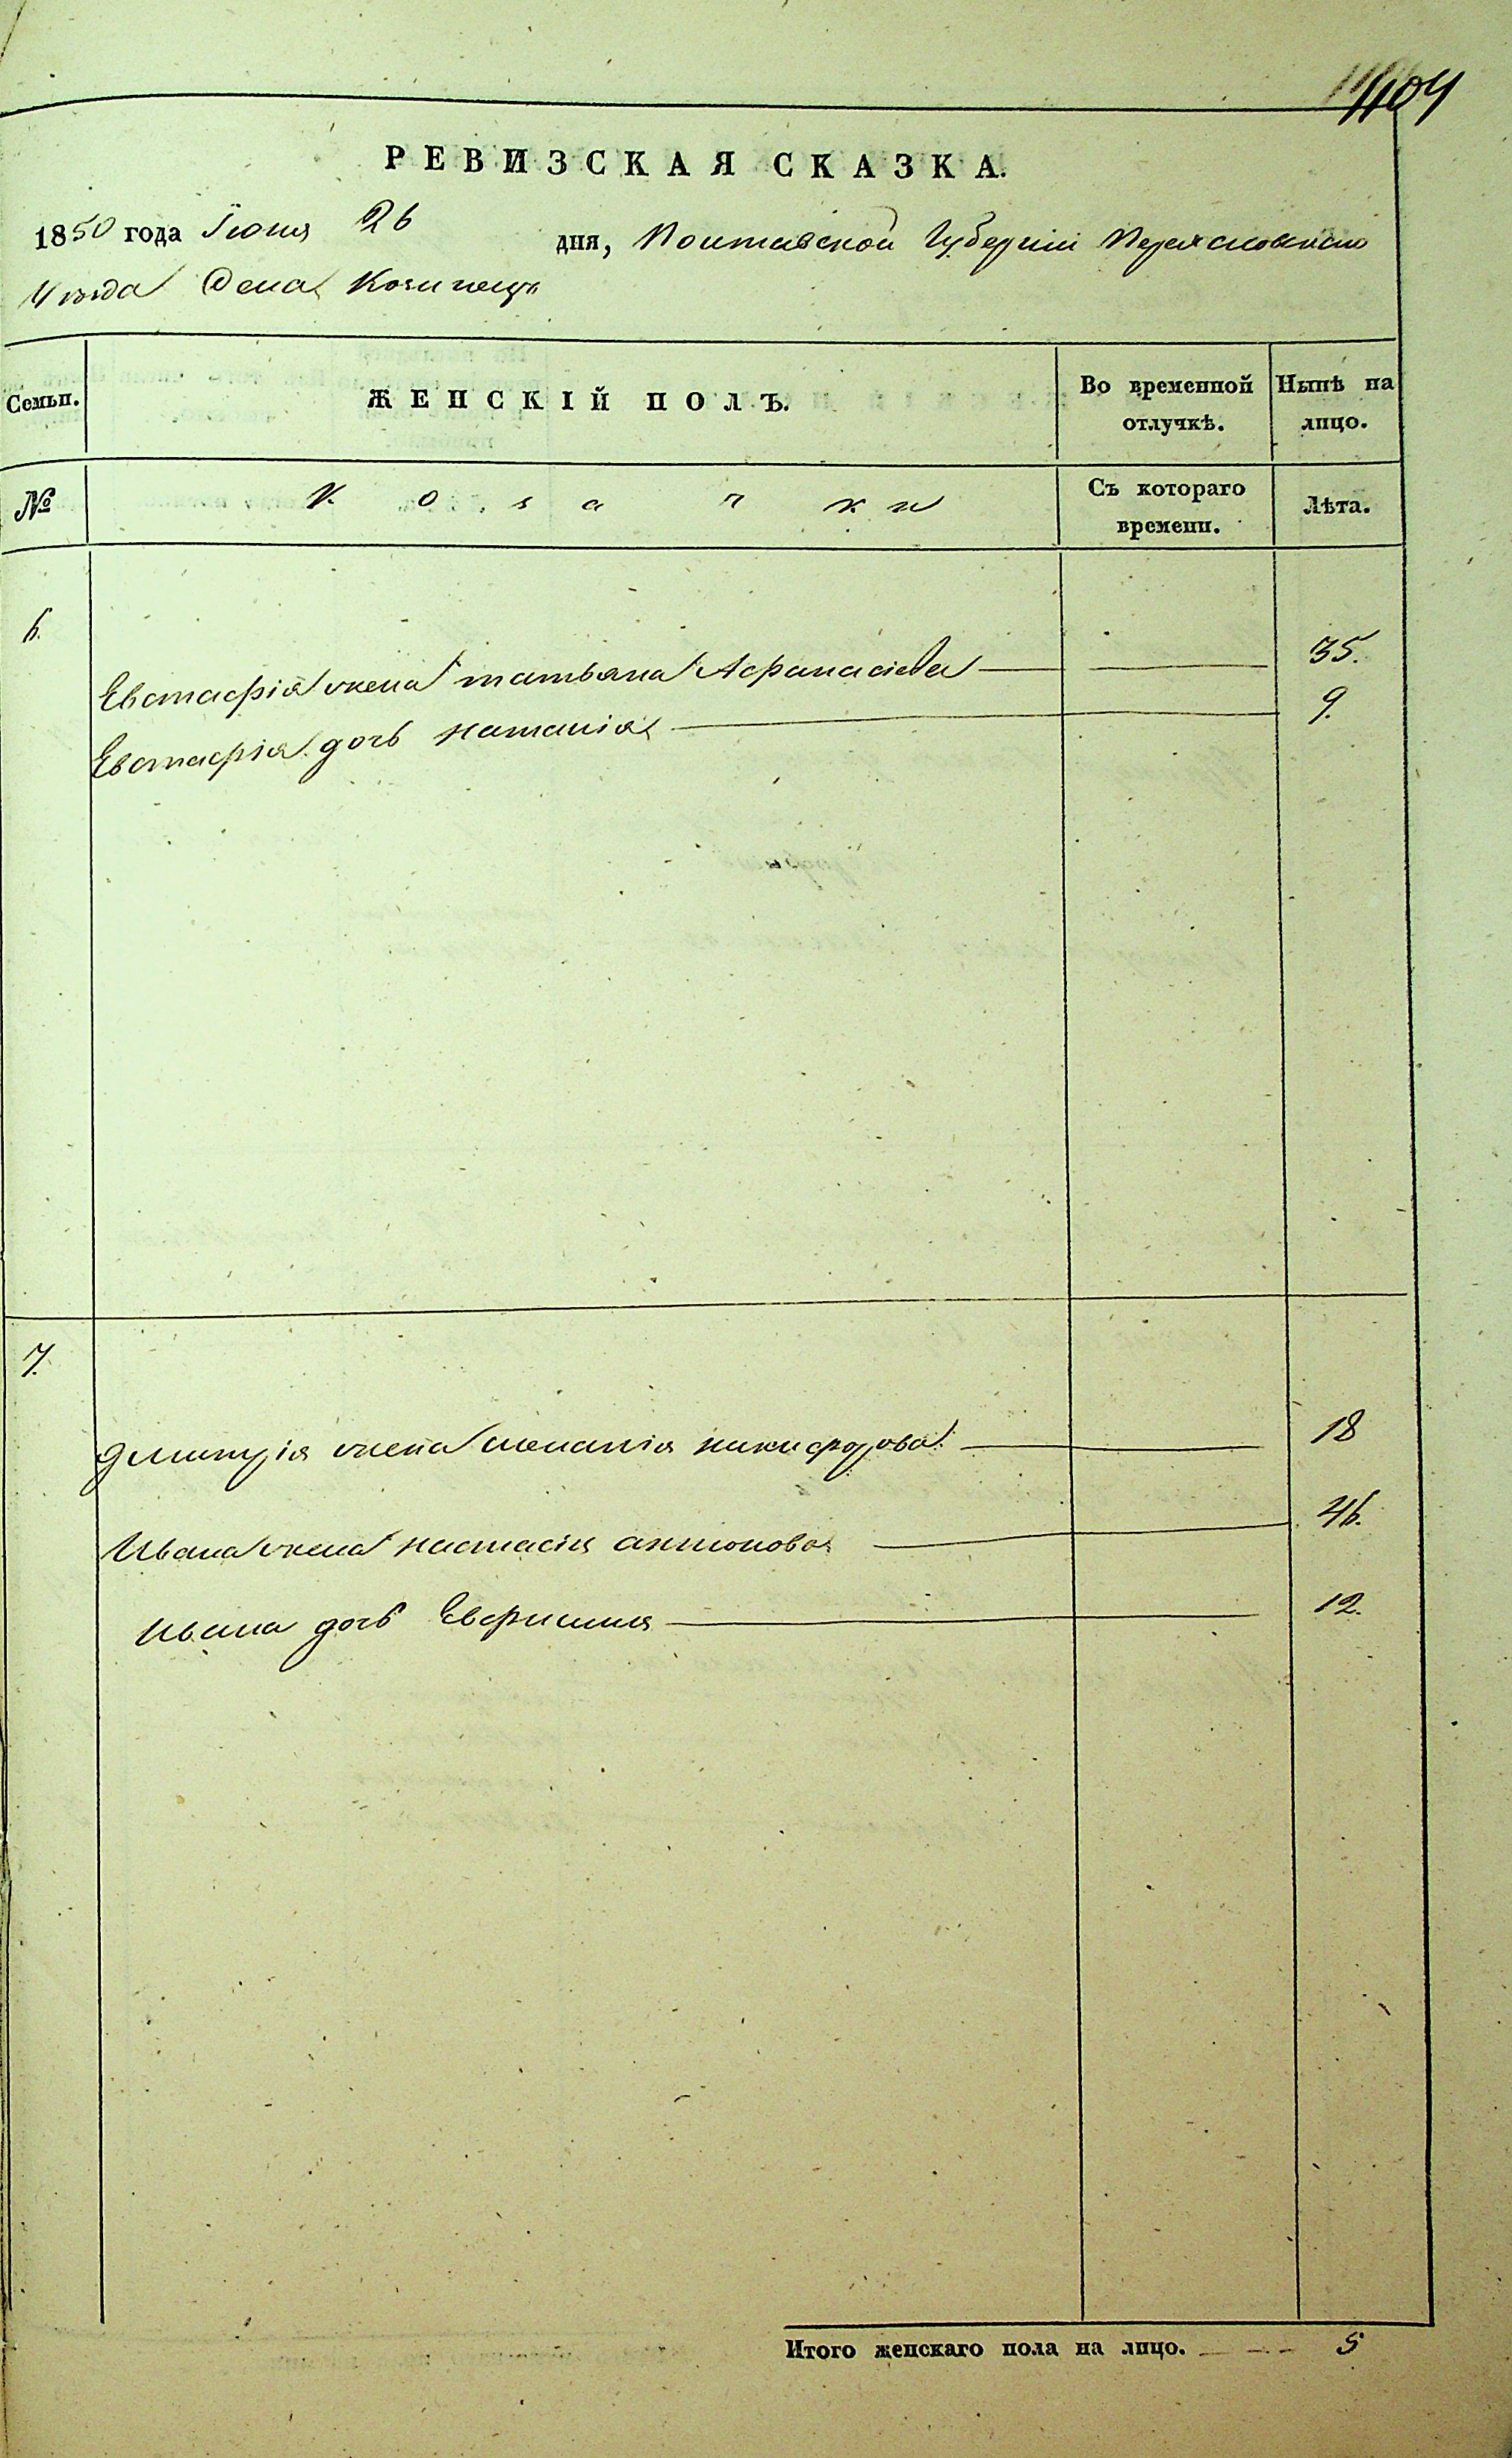 404
РЕВИЗСКАЯ СКАЗКА.
1850 года Іюня 26 дня, Полтавской Губерніи Переяславскаго
Уѣзда Села Козинецъ
Семьи. ЖЕНСКІЙ ПОЛЪ. Во временной отлучкѣ. Нынѣ на лицо.
№ Козачки Съ котораго времени. Лѣта.
6. Евстафія жена татьяна Афанасіева 35.
Евстафія дочь наталія 9.
7. дмитрія жена меланія никифорова 18
Ивана жена настасія антонова 46.
Ивана дочь Евфимия 12.
Итого женскаго пола на лицо. 5